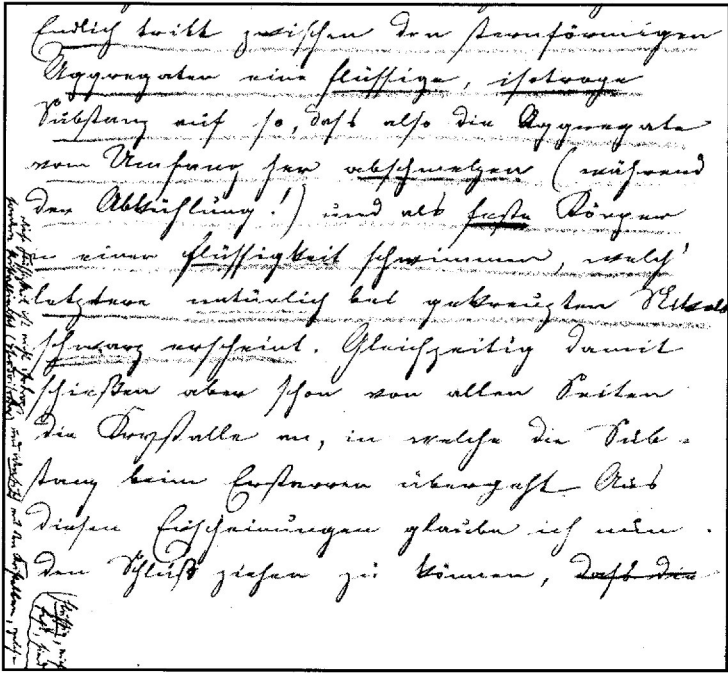 Endlich tritt zwischen den sternförmigen
Aggregaten eine flüssige, isotrope
Substanz auf so, daß also die Aggregate
vom Umfang her abschmelzen (während
der Abkühlung!) und als feste Körper
in einer Flüssigkeit schwimmen, welch'
letztere natürlich bei gekreuzten Nikols
schwarz erscheint. Gleichzeitig damit
schießen aber schon von allen Seiten
die Krystalle an, in welche die Sub-
stanz beim Erstarren übergeht. Aus
diesen Erscheinungen glaube ich nun
den Schluß ziehen zu können, daß die